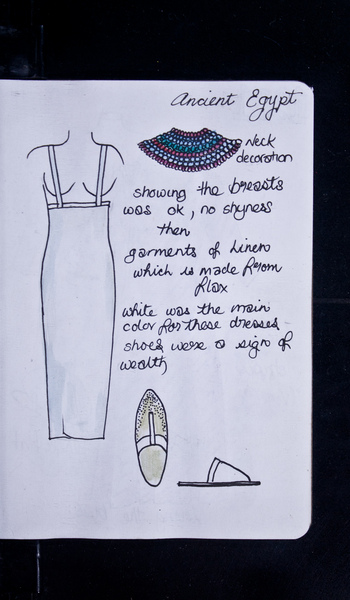 Ancient Egypt
Neck
decoration
showing the breasts
was ok, no shyness
then
garments of linen
which is made from
flax
white was the main
color for these dresses
shoes were a sign of
wealth